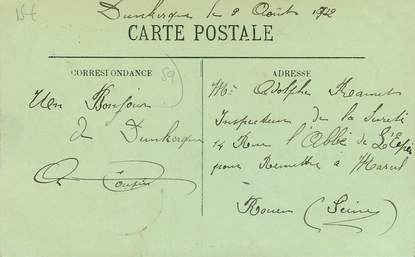 15€
Dunkerque le 9 Août 1912
CARTE POSTALE
CORRESPONDANCE
59
ADRESSE
Un Bonjour
de Dunkerque
Mr Adolphe
Inspecteur de la Sureté
14 Rue l'Abbé de L'Epée
pour Remettre à Marcel
Rouen (Seine)